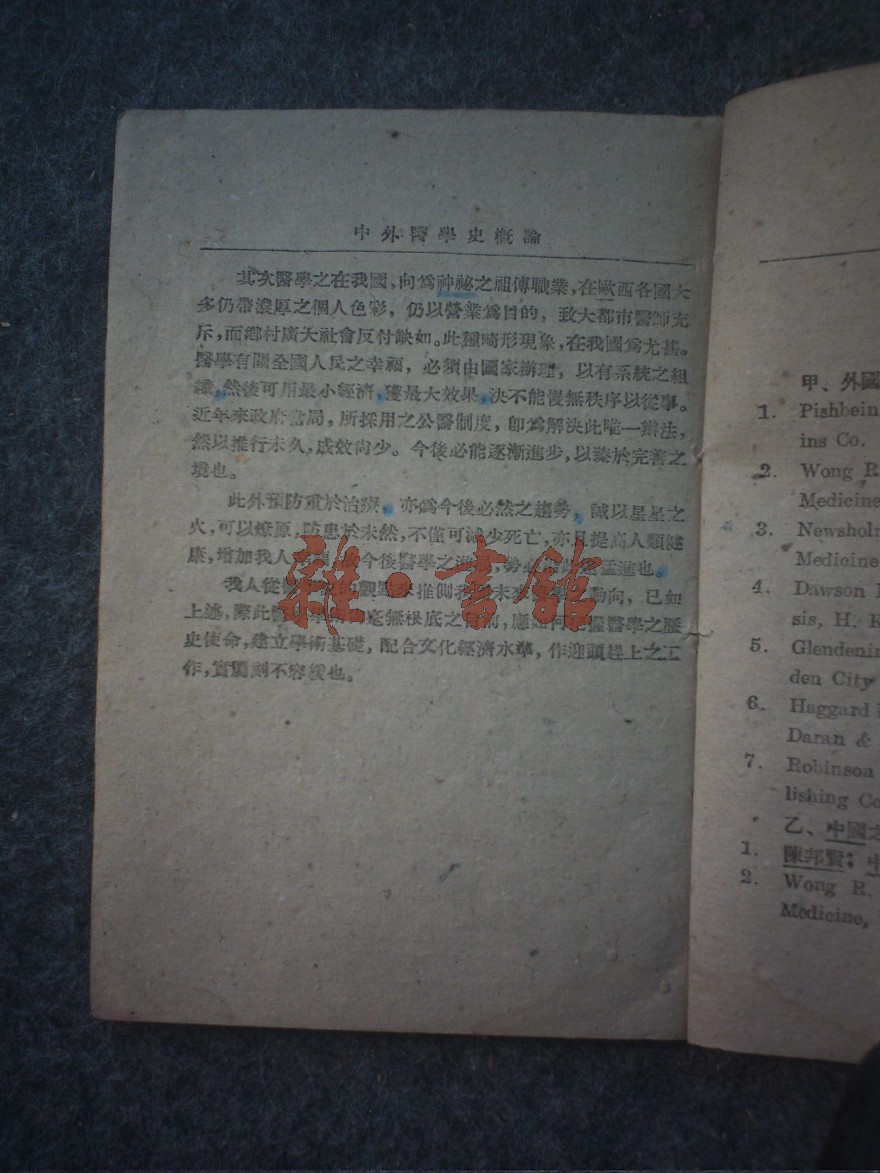 中外醫學史概論
其次醫學之在我國，向爲神祕之祖傳職業，在歐西各國大
多仍帶濃厚之個人色彩，仍以營業爲目的，致大都市醫師充
斥，而鄉村廣大社會反付缺如。此種畸形現象，在我國爲尤甚。
醫學有關全國人民之幸福，必須由國家辦理，以有系統之組
織，然後可用最小經濟，獲最大效果，決不能慢無秩序以從事。
近年來政府當局，所採用之公醫制度，卽爲解決此唯一辦法，
然以推行未久，成效尙少。今後必能逐漸進步，以臻於完善之
境也。
此外預防重於治療，亦爲今後必然之趨勢，誠以星星之
火，可以燎原，防患於未然，不僅可減少死亡，亦且提高人類健
康，增加我人 今後醫學之 猛進也。
我人從 的觀點 推測我 未 動向，已如
上述，際此醫 毫無根底之 前，應如何把握醫學之歷
史使命，建立學術基礎，配合文化經濟水準，作迎頭趕上之工
作，實屬刻不容緩也。
雜·書館
甲、外國
1. Pishbein
ins Co.
2. Wong R
Medicine
3. Newsholm
Medicine
4. Dawson
sis, H. K
5. Glendenin
den City
6. Haggard
Daran &
7. Robinson
lishing Co
乙、中國之
1. 陳邦賢：中
2. Wong R.
Medicine,